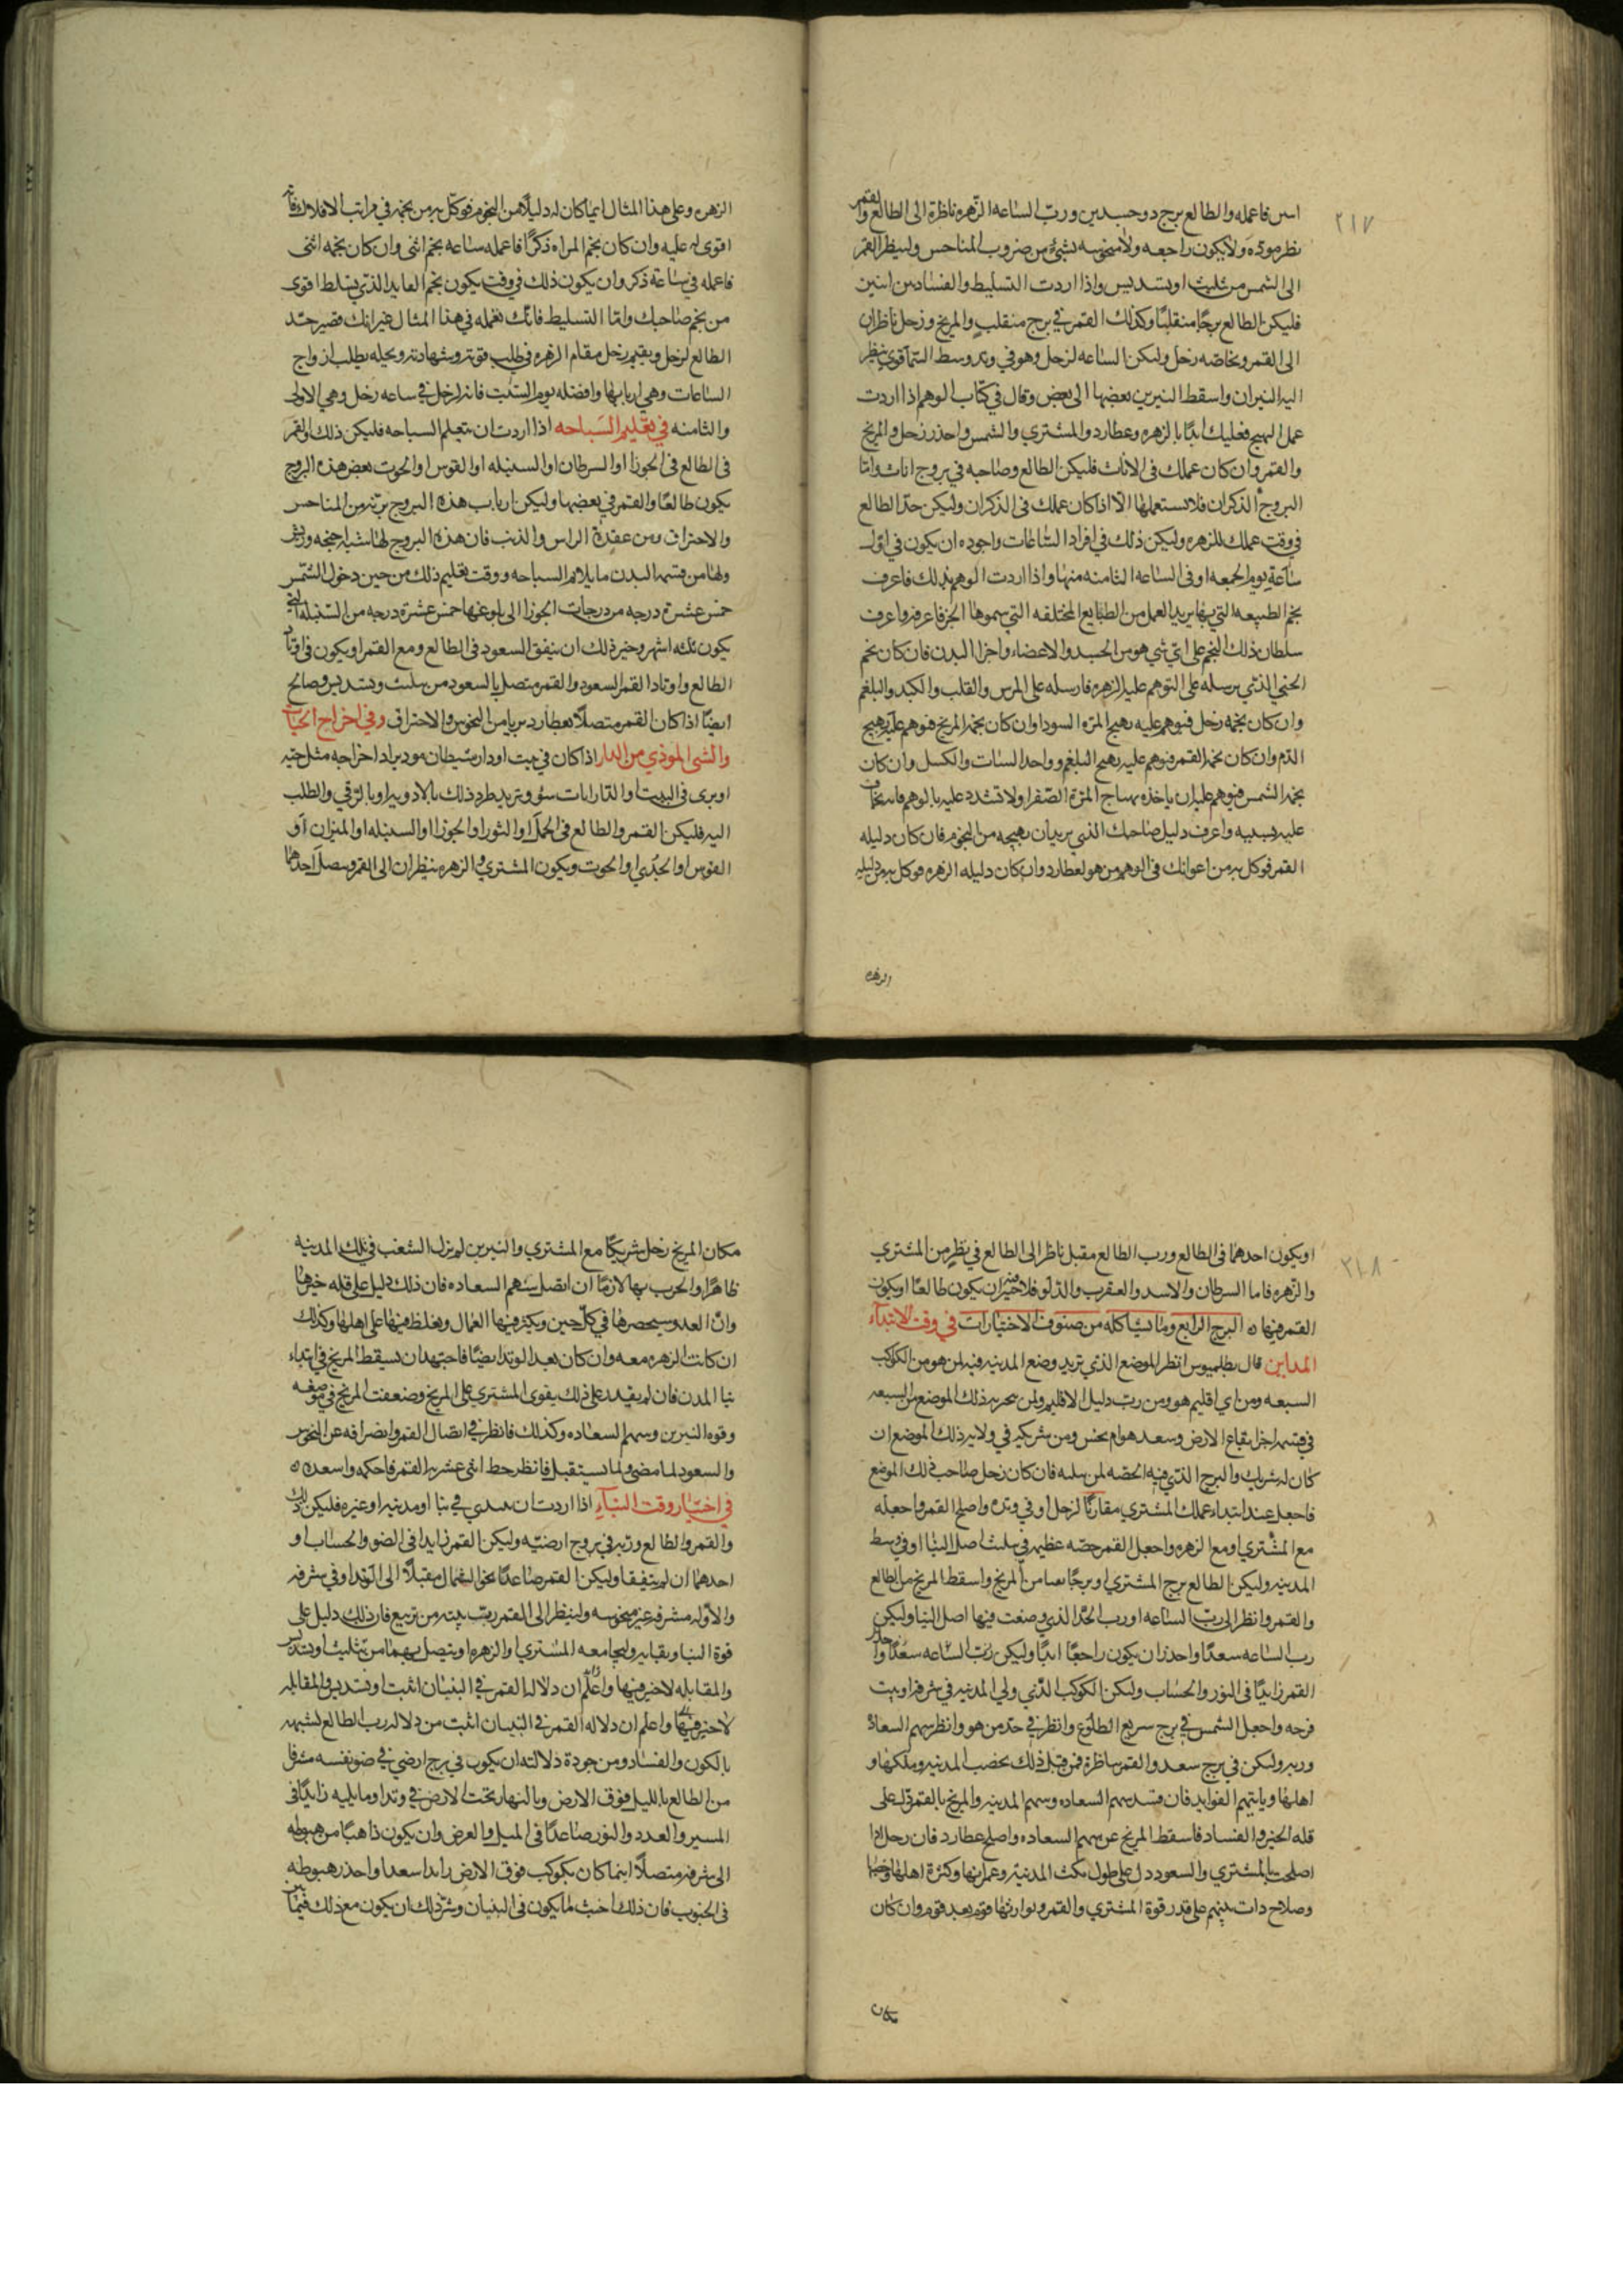 ٢١٧
اسن فاعمله والطالع برج ذو جسدين ورب الساعه الزهره ناظرة الى الطالع والقمر
نظر موده ولا يكون راجعه ولا منحوسه بشئ من ضروب المناحس ولينظر القمر
الى الشمس من تثليث او تسديس واذا اردت التسليط والفساد بين اثنين
فليكن الطالع برجا منقلبا وكذلك القمر في برج منقلب والمريخ وزحل ناظران
الى القمر وبخاصه زحل وليكن الساعه لزحل وهو في وتد وسط السما قوي ينظر
اليه النيران واسقط النيرين بعضها الى بعض وقال في كتاب الوهم اذا اردت
عمل الهيج فعليك ابدا بالزهره وعطارد والمشتري والشمس واحذر زحل والمريخ
والقمر وان كان عملك فى الاناث فليكن الطالع وصاحبه في بروج اناث واما
البروج الذكران فلا تستعملها الا اذا كان عملك فى الذكران وليكن حد الطالع
في وقت عملك للزهره وليكن ذلك في افراد الساعات واجوده ان يكون في اول
ساعة يوم الجمعه او فى الساعه الثامنه منها واذا اردت الوهم بذلك فاعرف
نجم الطبيعه التي بها يريد العمل من الطبايع المختلفه التي سموها الجن فاعرفه واعرف
سلطان ذلك النجم على اي شي هو من الجسد والاعضاء واجزا البدن فان كان نجم
الجني الذي يرسله على التوهم عليه الزهره فارسله على المرس والقلب والكبد والبلغم
وان كان نجمه زحل فتوهم عليه بهيج المرة السودا وان كان نجمه المريخ فتوهم عليه بهيج
الدم وان كان نجمه القمر فتوهم عليه بهيج البلغم وواحد السبات والكسل وان كان
نجمه الشمس فتوهم عليه ان ياخذه بهياج المرة الصفرا ولا تشدد عليه بالوهم فانه يخاف
عليه بسببه واعرف دليل صاحبك الذي يريد ان يهيجه من النجوم فان كان دليله
القمر فوكل به من اعوانك في الوهم من هو لعطارد وان كان دليله الزهره فوكل به من دليله
الزهره
الزهره وعلى هذا المثال ايما كان له دليلا من النجوم فوكل به من نجمه في مراتب الافلاك فانه
اقوى له عليه وان كان نجم المراه ذكرا فاعمله ساعه نجم انثى وان كان نجمه انثى
فاعمله في ساعة ذكر وان يكون ذلك في وقت يكون نجم العابد الذي يتسلط اقوى
من نجم صاحبك واما التسليط فانك تعمله في هذا المثال غير انك تصير حد
الطالع لزحل ويقيم زحل مقام الزهره في طلب قوته وشهادته وتحيله يطلب ازواج
الساعات وهي اربابها وافضله يوم السبت فانه لزحل في ساعه زحل وهي الاولى
والثامنه في تعليم السباحه اذا اردت ان تتعلم السباحه فليكن ذلك والقمر
فى الطالع فى الجوزا او السرطان او السنبله او القوس او الحوت بعض هذه البروج
يكون طالعا والقمر في بعضها وليكن ارباب هذه البروج برئه من المناحس
والاحتراق ومن عقدة الراس والذنب فان هذه البروج لها اشباه اجنحه وريش
ولها من قسمه البدن ما يلايم السباحه ووقت تعليم ذلك من حين دخول الشمس
خمس عشرة درجه من درجات الجوزا الى بلوغها خمس عشرة درجه من السنبله التي
يكون ثلثه اشهر وخير ذلك ان يتفق السعود فى الطالع ومع القمر او يكون في اوتاد
الطالع واوتاد القمر السعود والقمر متصل بالسعود من تثليث وتسديس وصالح
ايضا اذا كان القمر متصلا بعطارد بريا من النحوس والاحتراق وفي اخراج الحيات
والشى الموذي من الدار اذا كان في بيت او دار شيطان موذ يراد اخراجه مثل حيه
او يرى فى البيت او الدار ايات سؤ وتريد طرد ذلك بالادويه او بالرقي والطلب
اليه فليكن القمر والطالع فى الحمل او الثور او الجوزا او السنبله او الميزان او
القوس او الجدي او الحوت ويكون المشتري والزهره ينظران الى القمر ويتصل احدهما
٢١٨
او يكون احدهما فى الطالع ورب الطالع مقبل ناظر الى الطالع في نظر من المشتري
والزهره فاما السرطان والاسد والعقرب والدلو فلا خير ان يكون طالعا او يكون
القمر فيها ه البرج الرابع وما شاكله من صنوف الاختيارات في وقت الابتداء
المداين قال بطلميوس انظر الموضع الذي تريد وضع المدينه فيه لمن هو من الكواكب
السبعه ومن اي اقليم هو ومن رب دليل الاقليم ولمن بحريه ذلك الموضع من السبعه
في قسمه اجزا بقاع الارض وسعد هو ام نحس ومن شريكه في ولايه ذلك الموضع ان
كان له شريك والبرج الذي فيه الحصه لمن بيته فان كان زحل صاحب ذلك الموضع
فاجعل عند ابتداء عملك المشتري مقارنا لزحل او في وتده واصلح القمر واجعله
مع المشتري او مع الزهره واجعل للقمر حصه عظيمه في تثليث اصل البنا او في وسط
المدينه وليكن الطالع برج المشتري او برجا سالما من المريخ واسقط المريخ من الطالع
والقمر وانظر الى رب الساعه او رب الحد الذي وضعت فيها اصل البنا وليكن
رب الساعه سعدا واحذر ان يكون راجعا ابدا وليكن رب الساعه سعدا واجعل
القمر زايدا فى النور والحساب وليكن الكوكب الذي ولي المدينه في شرفه او بيت
فرحه واجعل الشمس في برج سريع الطلوع وانظر في حد من هو وانظر سهم السعاده
وربه وليكن في برج سعد والقمر ناظره فمن قبل ذلك يخصب المدينه وملكها و
اهلها وياتيهم الفوايد فان فسد سهم السعاده وسهم المدينه والمريخ بالقمر دل على
قله الخير والفساد فاسقط المريخ عن سهم السعاده واصلح عطارد فان زحل اذا
اصلحت بالمشتري والسعود دل على طول مكث المدينه وعمرانها وكثرة اهلها وخصبها
وصلاح ذات بينهم على قدر قوة المشتري والقمر وتوارثها قوم بعد قوم وان كان
مكان
مكان المريخ زحل شريكا مع المشتري والنيرين لم يزل الشغب في تلك المدينه
ظاهرا والحرب بها لازما ان اتصل بسهم السعاده فان ذلك دليل على قله خيرها
وان العدو سيحصرها في كل حين ويكثر فيها العمال ويغلظ فيها على اهلها وكذلك
ان كانت الزهره معه وان كان بعيد الوتد ايضا فاجتهد ان تسقط المريخ في ابتداء
بنا المدن فان لم يقدر على ذلك يقوى المشتري على المريخ وضعفت المريخ في موضعه
وقوه النيرين وسهم السعاده وكذلك فانظر في اتصال القمر وانصرافه عن النحوس
والسعود لما مضى ولما يستقبل فانظر حظ اثنى عشريه القمر فاحكمه واسعده ه
في اختيار وقت البناء اذا اردت ان تبتدي في بنا او مدينه او غيره فليكن ذلك
والقمر والطالع وربه في بروج ارضيه وليكن القمر زايدا في الضو والحساب او
احدهما ان لم يتفقا وليكن القمر صاعدا نحو الشمال مقبلا الى الوتد او في شرفه
والا وله مشرفه غير منحوسه ولينظر الى القمر رب بيته من تربيع فان ذلك دليل على
قوة البنا وبقايه وليجامعه المشتري والزهره او يتصل بهما من تثليث او تسديس
والمقابله لا خير فيها واعلم ان دلاله القمر في البنيان اثبت او تسديس والمقابله
لا خير فيها واعلم ان دلاله القمر في البنيان اثبت من دلاله رب الطالع لشبهه
بالكون والفساد ومن جودة دلالته ان يكون في برج ارضي في ضو نفسه مشرفا
من الطالع بالليل فوق الارض وبالنهار تحت الارض في وتد او ما يليه زايدا فى
المسير والعدد والنور صاعدا فى الميل والعرض وان يكون ذاهبا من هبوطه
الى شرفه متصلا اينما كان بكوكب فوق الارض زايدا سعدا واحذر هبوطه
فى الجنوب فان ذلك اخبث ما يكون فى البنيان وشر ذلك ان يكون مع ذلك فيما